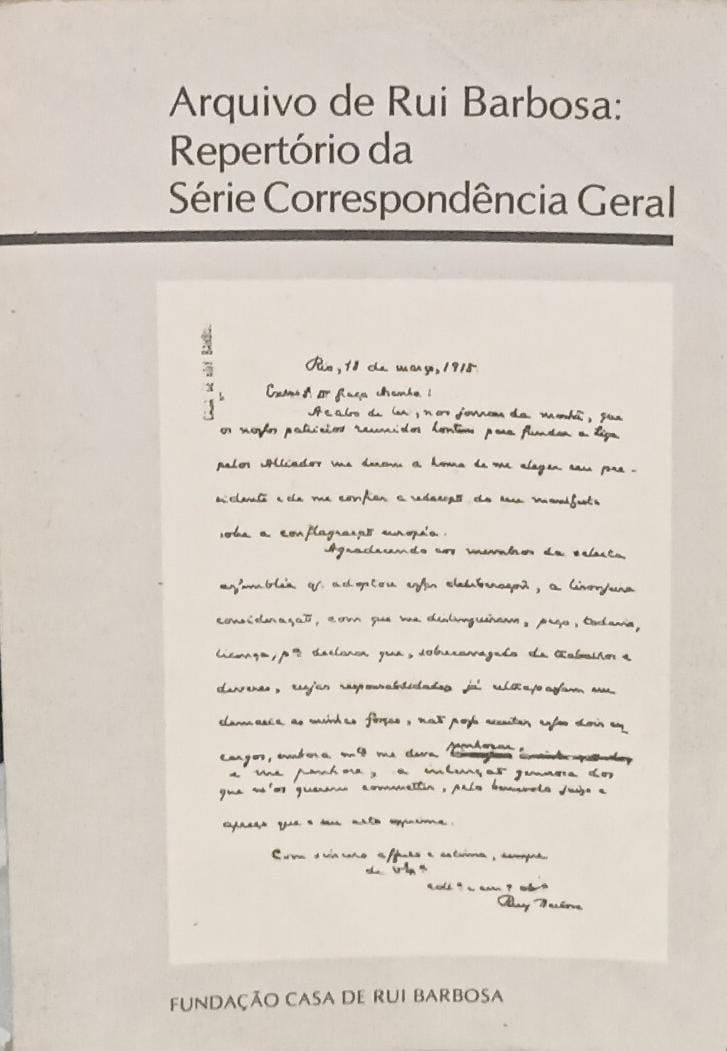 Arquivo de Rui Barbosa:
Repertório da
Série Correspondência Geral
Rio, 18 de março, 1915.
Exmo Sr. Dr Graça Aranha:
Acabo de ler, nos jornaes da manhã, que
os nossos patricios reunidos hontem para fundar a Liga
pelos Alliados me deram a honra de me eleger seu pre-
sidente e de me confiar a redacção do seu manifesto
sobre a conflagração européa.
Agradecendo aos membros da selecta
assembléa q. adoptou essa deliberação, a lisonjeira
consideração, com que me distinguiram, peço, todavia,
licença, pa declarar que, sobrecarregado de trabalhos e
deveres, cujas responsabilidades já ultrapassam em
demasia as minhas forças, não posso acceitar esses dois en
cargos, embora mto me deva penhorar,
e me penhore, a intenção generosa dos
que m'os querem commetter, pelo benevolo juizo e
apreço que o seu acto exprime.
Com sincero affecto e estima, sempre
de V. Exa
Ruy Barbosa
FUNDAÇÃO CASA DE RUI BARBOSA